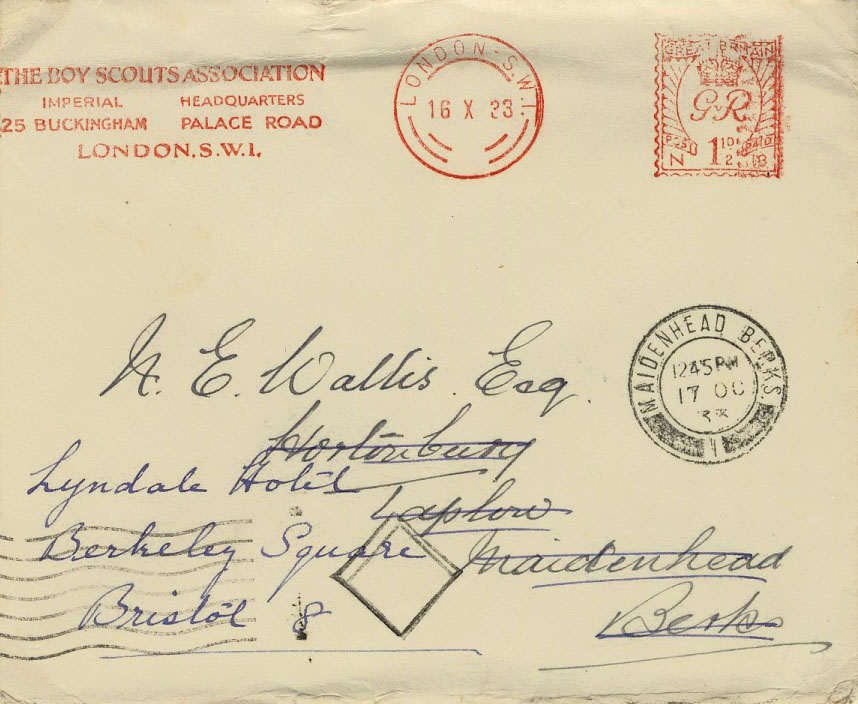 THE BOY SCOUTS ASSOCIATION
IMPERIAL HEADQUARTERS
25 BUCKINGHAM PALACE ROAD
LONDON. S.W.1.
LONDON · S.W.1.
16 X 33
GREAT BRITAIN
GvR
POST PAID
N 1½D 13
MAIDENHEAD BERKS.
1245 PM
17 OC
33
1
N. E. Wallis. Esq.
Hortonbury
Taplow
Maidenhead
Berks
Lyndale Hotel
Berkeley Square
Bristol 8